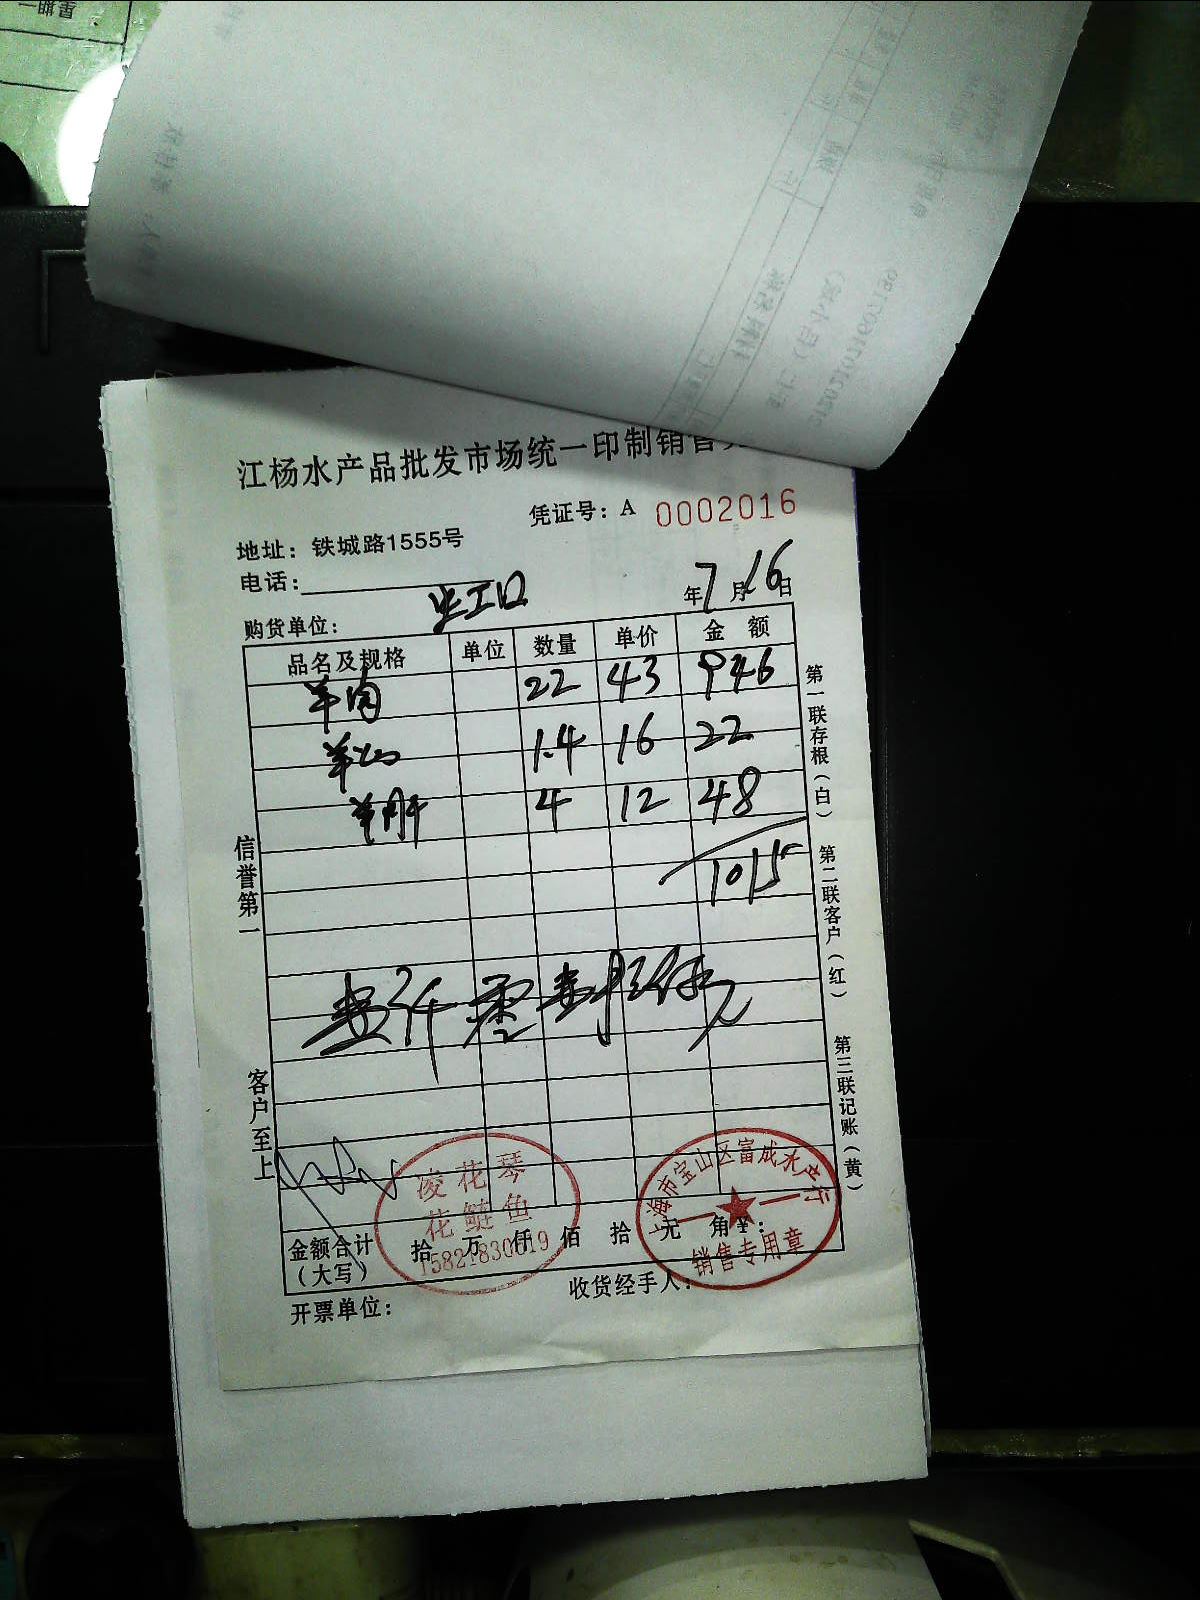 江杨水产品批发市场统一印制销售
凭证号：A 0002016
地址：铁城路1555号
电话：
年7月16日
购货单位：
品名及规格 单位 数量 单价 金 额
羊肉 22 43 946
羊心 1.4 16 22
羊肝 4 12 48
1015
壹仟零壹拾伍元
信誉第一
客户至上
第一联存根（白）
第二联客户（红）
第三联记账（黄）
凌花琴
花鲢鱼
上海市宝山区富成水产行
销售专用章
金额合计（大写） 拾 万 仟 佰 拾 元 角 ¥：
开票单位：
收货经手人：